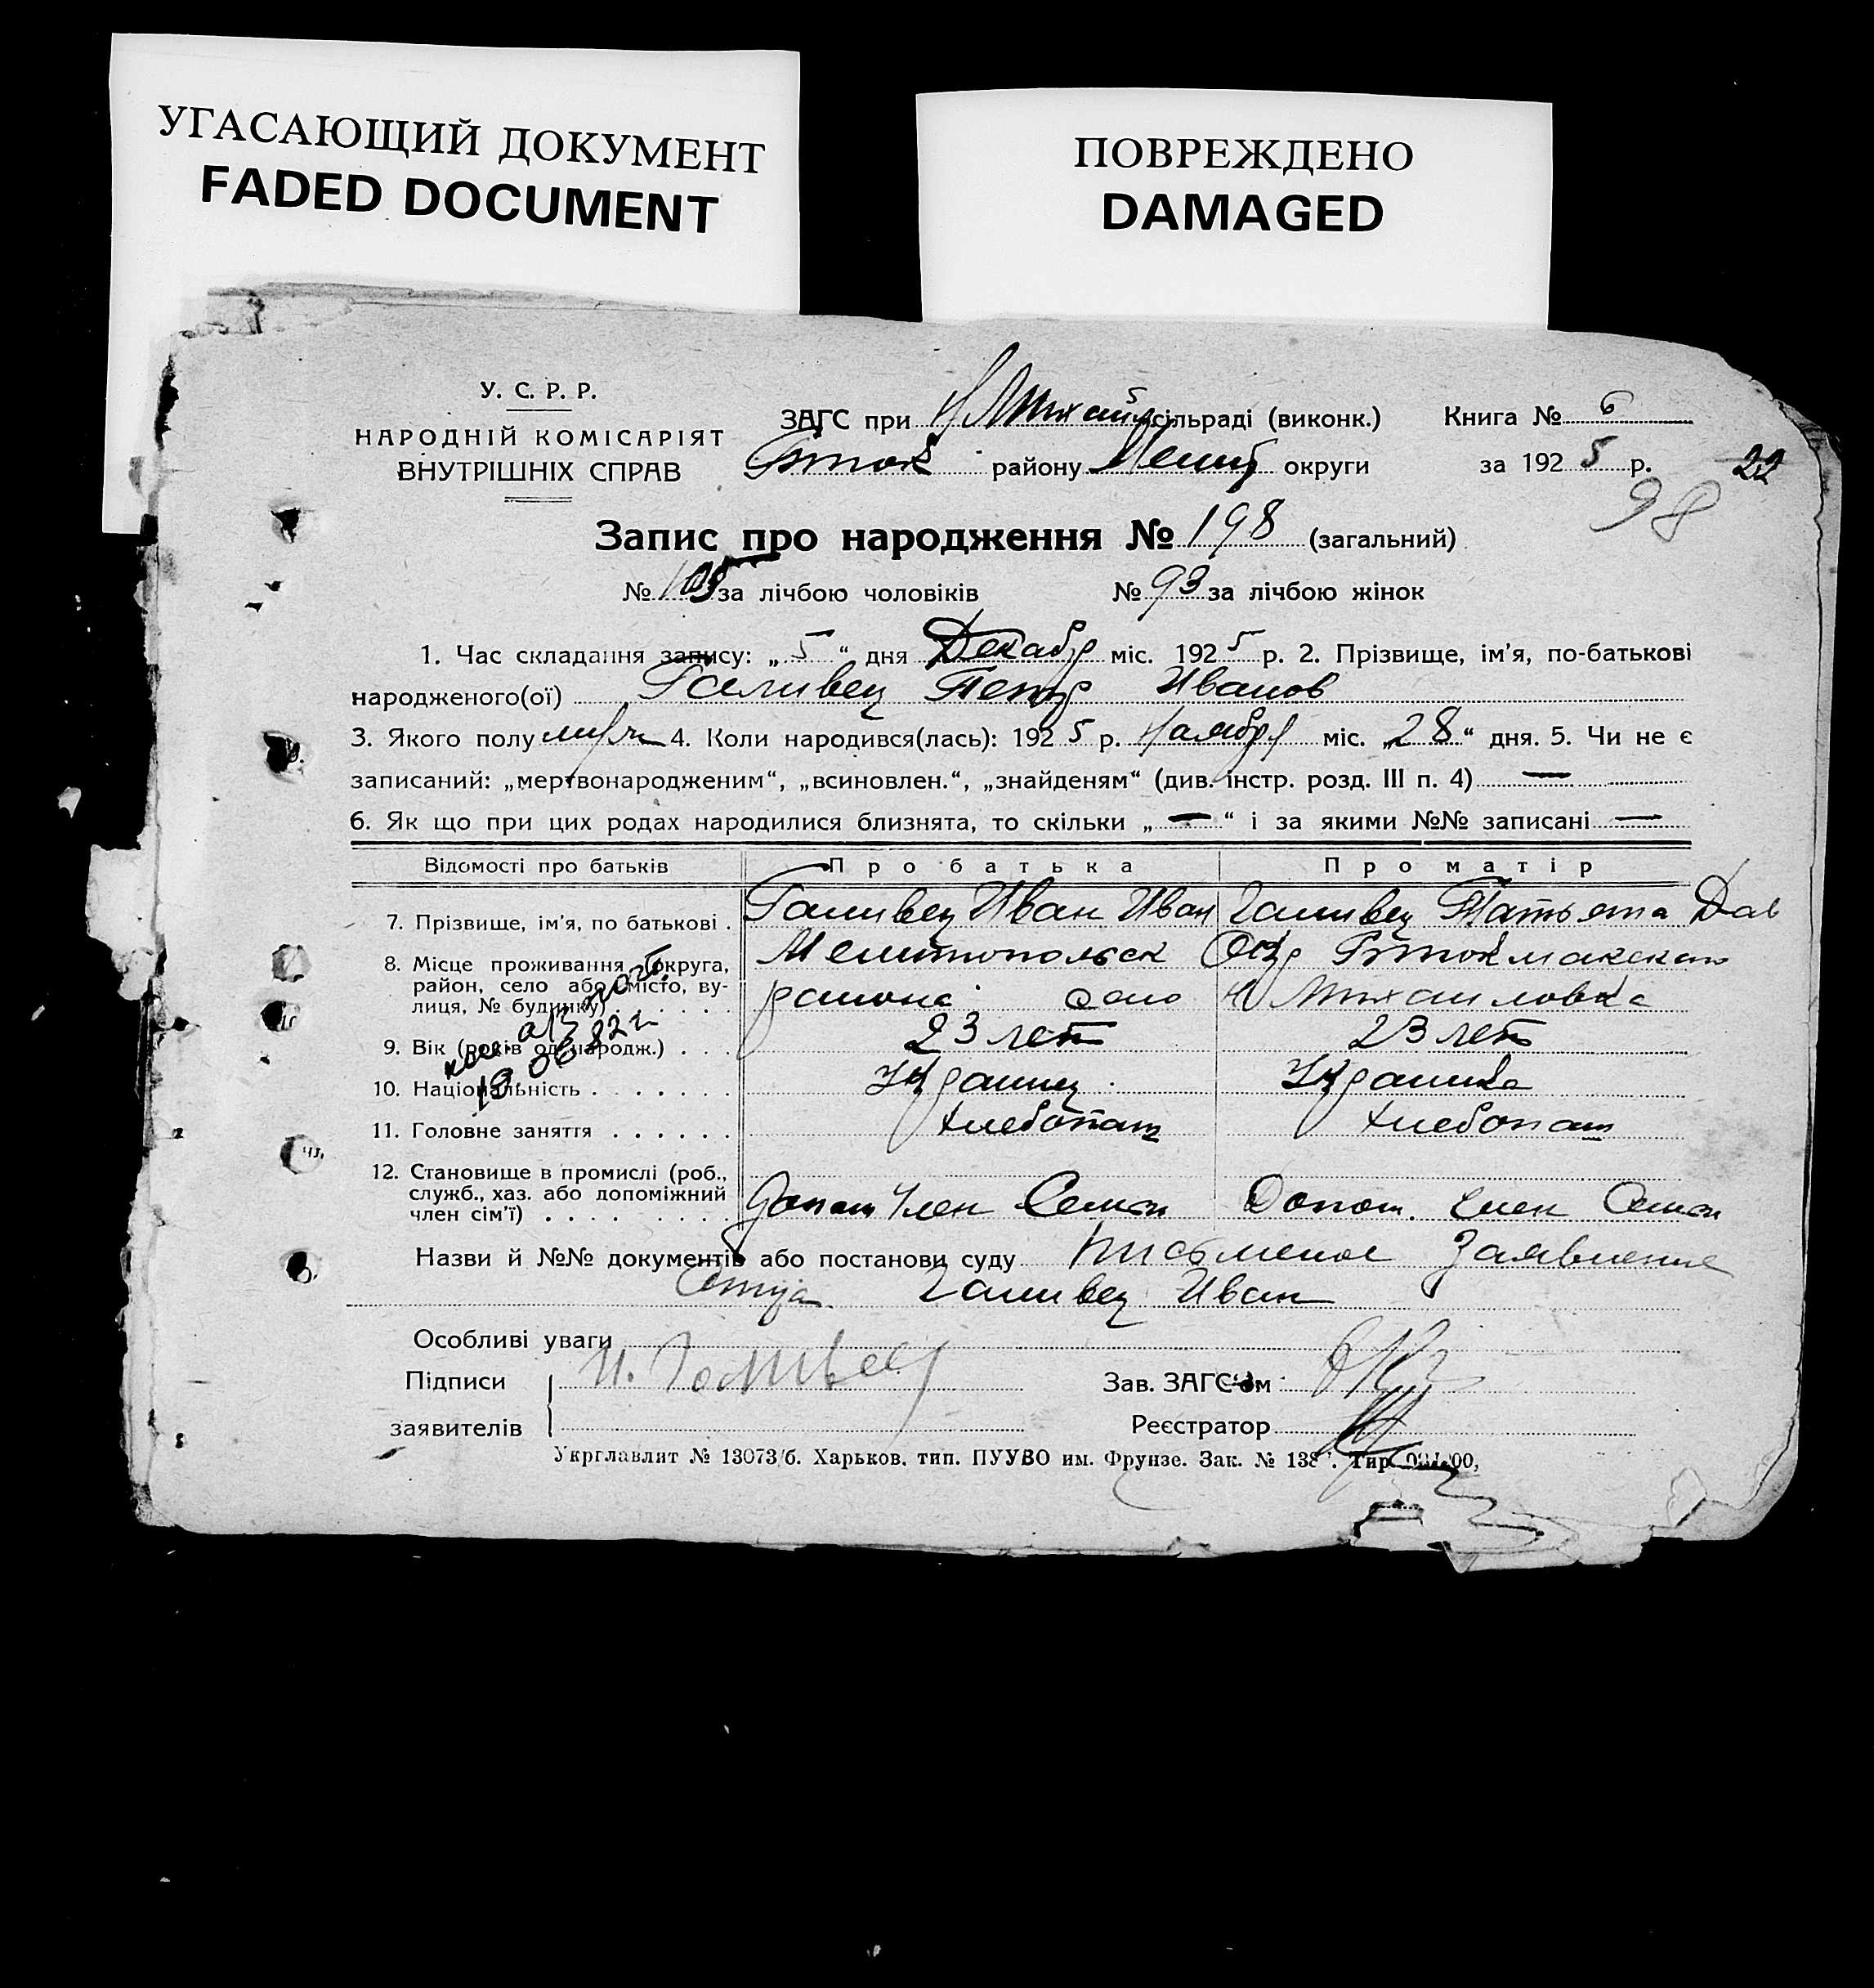 УГАСАЮЩИЙ ДОКУМЕНТ
FADED DOCUMENT
ПОВРЕЖДЕНО
DAMAGED
У. С. Р. Р.
НАРОДНІЙ КОМІСАРІЯТ
ВНУТРІШНІХ СПРАВ
ЗАГС при Н Михайл сільраді (виконк.) Книга № 6
району Мелит округи за 1925 р. 22
98
Запис про народження № 198 (загальний)
№ 105 за лічбою чоловіків № 93 за лічбою жінок
1. Час складання запису: „5“ дня Декабр міс. 1925 р. 2. Прізвище, ім’я, по-батькові
народженого(ої) Галивец Петр Иванов
3. Якого полу муж 4. Коли народився(лась): 1925 р. Наябр міс. „28“ дня. 5. Чи не є
записаний: „мертвонародженим“, „всиновлен.“, „знайденям“ (див. інстр. розд. III п. 4) —
6. Як що при цих родах народилися близнята, то скільки „—“ і за якими №№ записані —
Відомості про батьків Про батька Про матір
7. Прізвище, ім’я, по батькові . Галивец Иван Иван Галивец Татьяна Дав
8. Місце проживання (округа, район, село або місто, вулиця, № будинку) Мелитопольск Окр Бтокмакскаго
района село Н Михаиловка
9. Вік (років од народж.) . . . 23 лет 23 лет
10. Національність . . . . . . . Украинец Украинка
11. Головне заняття . . . . . . Хлебопаш Хлебопаш
12. Становище в промислі (роб., служб., хаз. або допоміжний член сім’ї) . . . . Допом Член Семьи Допом. Член Семьи
Назви й №№ документів або постанови суду Письменое Заявление
Отца Галивец Иван
Особливі уваги
Підписи И. Галивец Зав. ЗАГС’ом
заявителів Реєстратор
Укрглавлит № 13073/б. Харьков. тип. ПУУВО им. Фрунзе. Зак. № 138